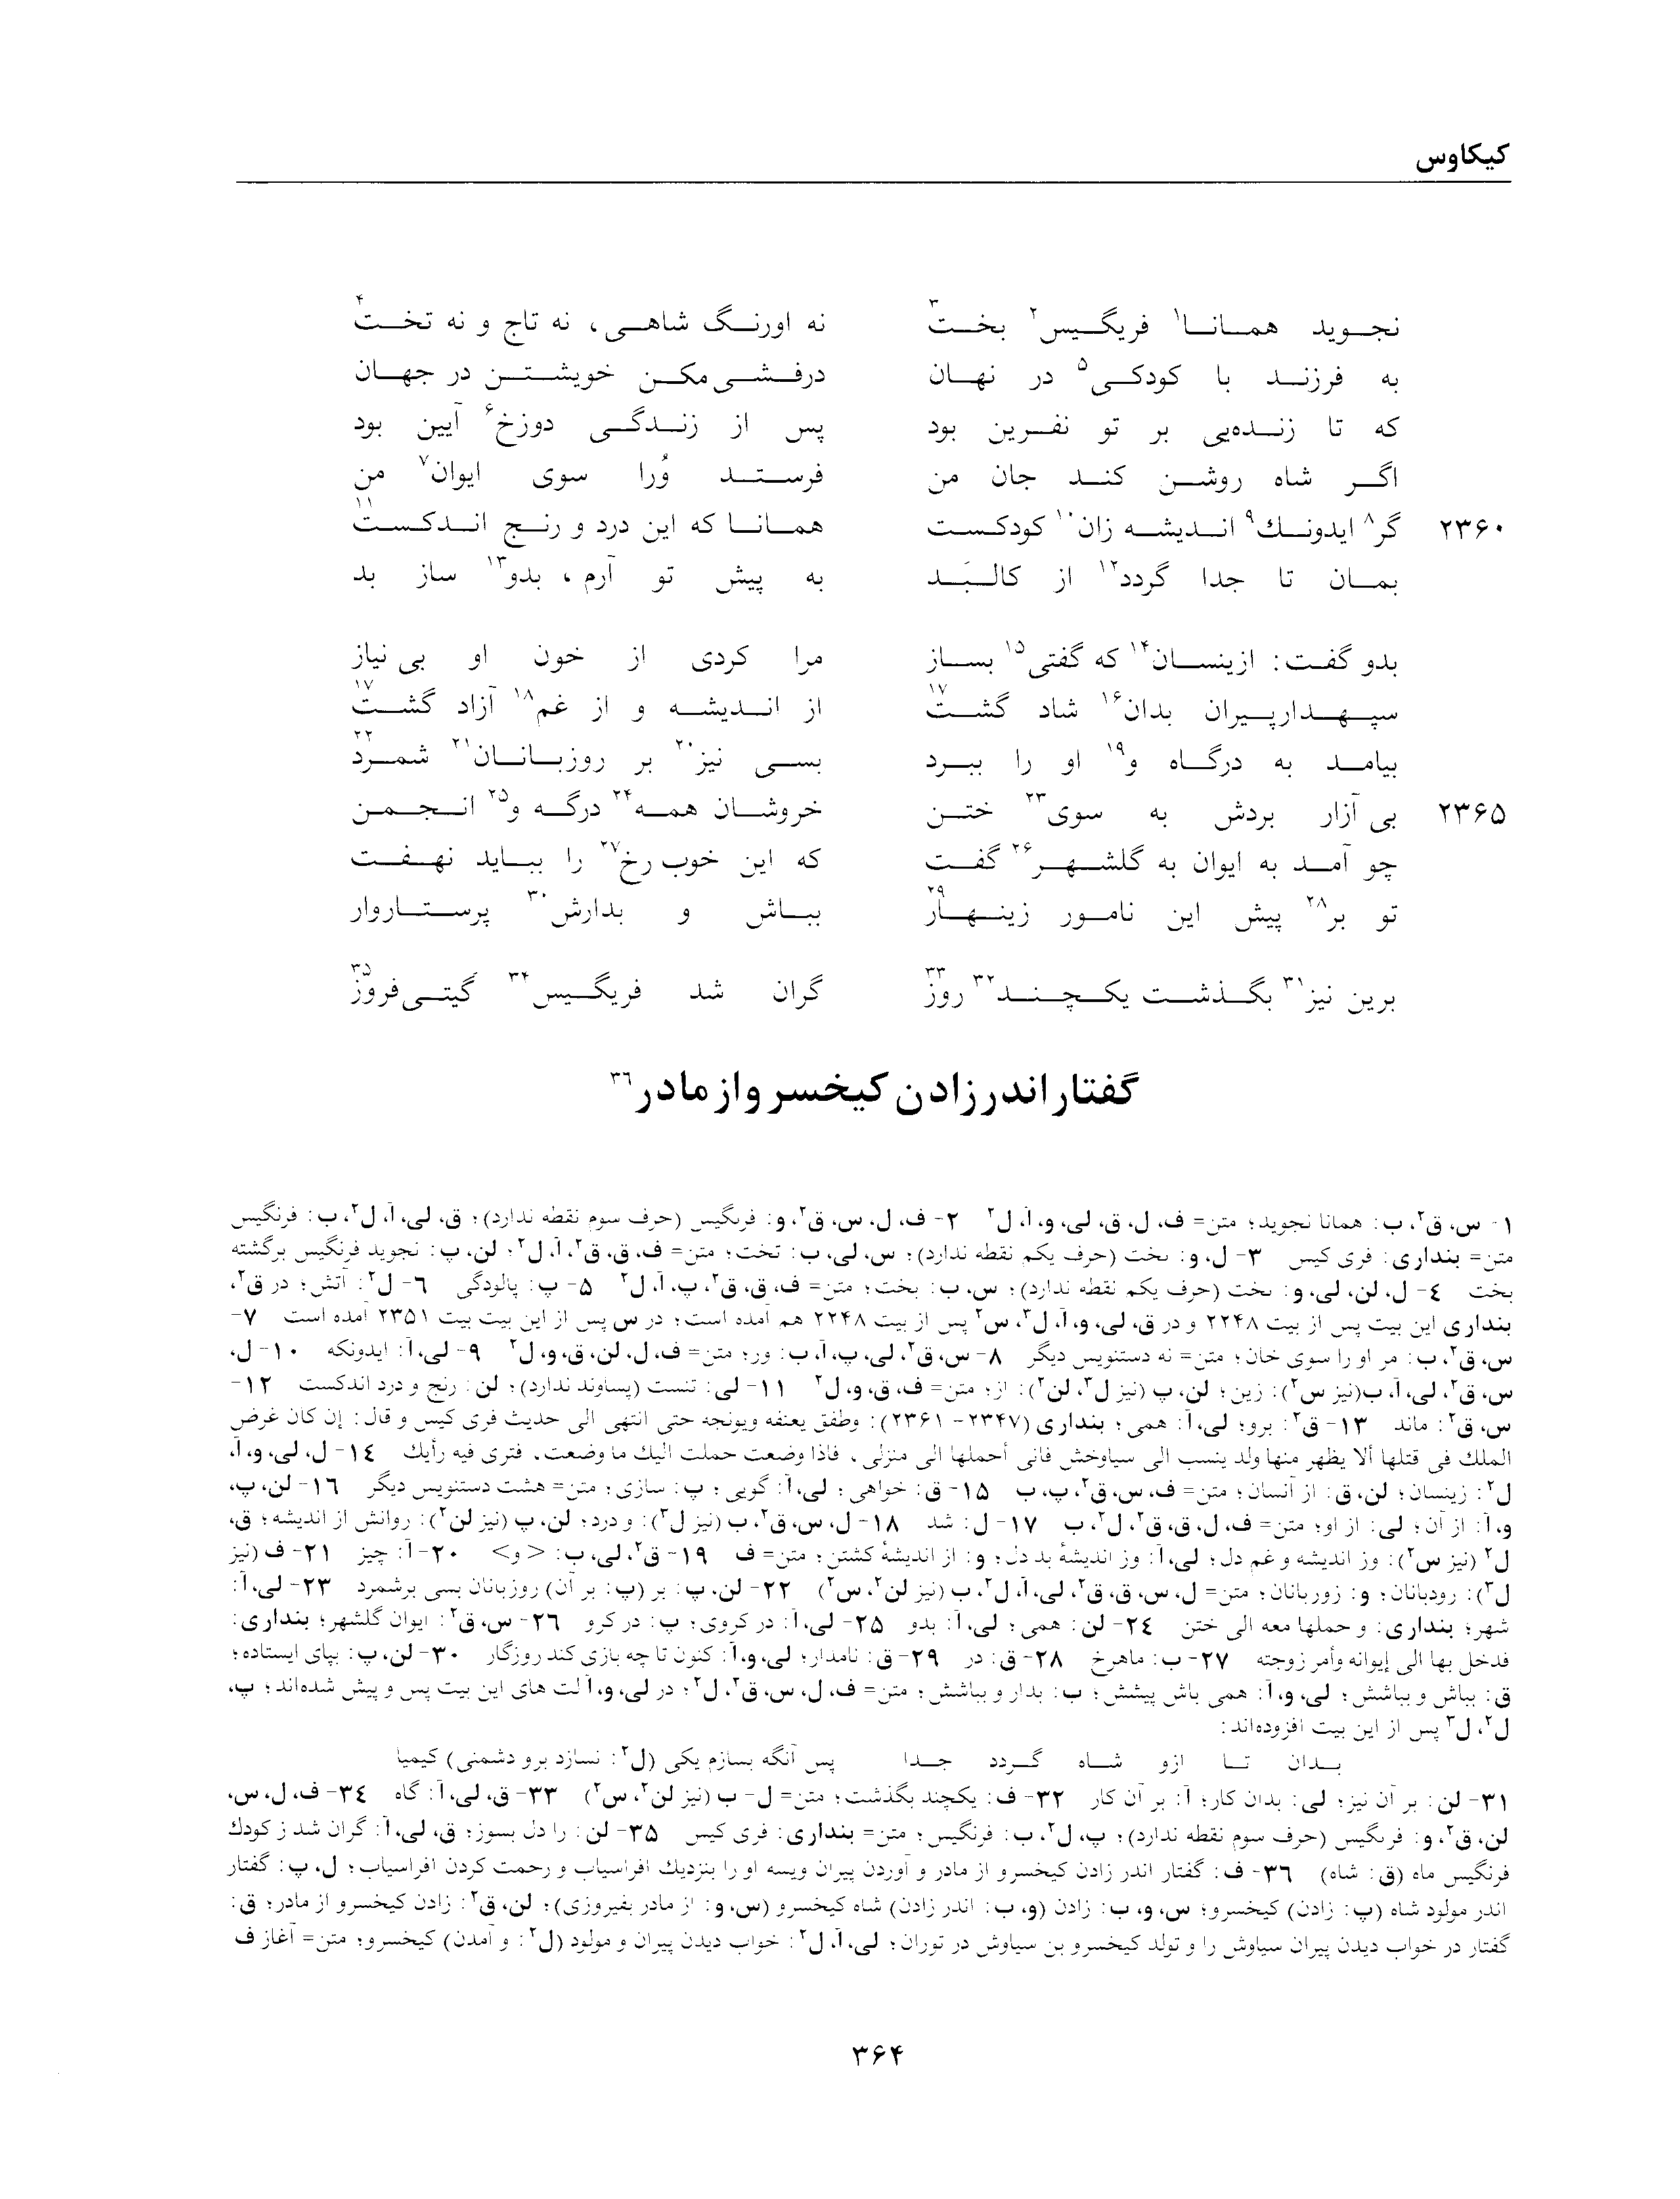 کیکاوس
نجوید همانا۱ فریگیس۲ بخت۳ نه اورنگ شاهی، نه تاج و نه تخت۴
به فرزند با کودکی۵ در نهان درفشی مکن خویشتن در جهان
که تا زنده‌یی بر تو نفرین بود پس از زندگی دوزخ۶ آیین بود
اگر شاه روشن کند جان من فرستد وُرا سوی ایوان۷ من
۲۳۶۰ گر۸ ایدونك۹ اندیشه زان۱۰ کودکست همانا که این درد و رنج اندکست۱۱
بمان تا جدا گردد۱۲ از کالبَد به پیش تو آرم، بدو۱۳ ساز بد
بدو گفت: ازینسان۱۴ که گفتی۱۵ بساز مرا کردی از خون او بی نیاز
سپهدارپیران بدان۱۶ شاد گشت۱۷ از اندیشه و از غم۱۸ آزاد گشت۱۷
بیامد به درگاه و۱۹ او را ببرد بسی نیز۲۰ بر روزبانان۲۱ شمرد۲۲
۲۳۶۵ بی آزار بردش به سوی۲۳ ختن خروشان همه۲۴ درگه و۲۵ انجمن
چو آمد به ایوان به گلشهر۲۶ گفت که این خوب رخ۲۷ را بباید نهفت
تو بر۲۸ پیش این نامور زینهار۲۹ بباش و بدارش۳۰ پرستاروار
برین نیز۳۱ بگذشت یکچند۳۲ روز۳۳ گران شد فریگیس۳۴ گیتی‌فروز۳۵
گفتار اندر زادن کیخسرو از مادر۳۶
۱- س، ق۲، ب: همانا نجوید؛ متن= ف، ل، ق، لی، و، آ، ل۲ ۲- ف، ل، س، ق۲، و: فرىگیس (حرف سوم نقطه ندارد)؛ ق، لی، آ، ل۲، ب: فرنگیس
متن= بنداری: فری کیس ۳- ل، و: ىخت (حرف یکم نقطه ندارد)؛ س، لی، ب: تخت؛ متن= ف، ق، ق۲، آ، ل۲؛ لن، پ: نجوید فرنگیس برگشته
بخت ٤- ل، لن، لی، و: ىخت (حرف یکم نقطه ندارد)؛ س، ب: بخت؛ متن= ف، ق، ق۲، پ، آ، ل۲ ۵- پ: پالودگی ٦- ل۲: آتش؛ در ق۲،
بنداری این بیت پس از بیت ۲۲۴۸ و در ق، لی، و، آ، ل۳، س۲ پس از بیت ۲۲۴۸ هم آمده است؛ در س پس از این بیت بیت ۲۳۵۱ آمده است ۷-
س، ق۲، ب: مر او را سوی خان؛ متن= نه دستنویس دیگر ۸- س، ق۲، لی، پ، آ، ب: ور؛ متن= ف، ل، لن، ق، و، ل۲ ۹- لی، آ: ایدونکه ۱۰- ل،
س، ق۲، لی، آ، ب(نیز س۲): زین؛ لن، پ (نیز ل۳، لن۲): از؛ متن= ف، ق، و، ل۲ ۱۱- لی: تنست (پساوند ندارد)؛ لن: رنج و درد اندکست ۱۲-
س، ق۲: ماند ۱۳- ق۲: برو؛ لی، آ: همی؛ بنداری (۲۳۴۷- ۲۳۶۱): وطفق یعنفه ویونجه حتی انتهی الی حدیث فری کیس و قال: إن کان غرض
الملك فی قتلها ألا یظهر منها ولد ینسب الی سیاوخش فانی أحملها الی منزلی، فاذا وضعت حملت الیك ما وضعت، فتری فیه رأیك ١٤- ل، لی، و، آ،
ل۲: زینسان؛ لن، ق: از آنسان؛ متن= ف، س، ق۲، پ، ب ۱۵- ق: خواهی؛ لی، آ: گویی؛ پ: سازی؛ متن= هشت دستنویس دیگر ۱٦- لن، پ،
و، آ: از آن؛ لی: از او؛ متن= ف، ل، ق، ق۲، ل۲، ب ۱۷- ل: شد ۱۸- ل، س، ق۲، ب (نیز ل۳): و درد؛ لن، پ (نیز لن۲): روانش از اندیشه؛ ق،
ل۲ (نیز س۲): وز اندیشه و غم دل؛ لی، آ: وز اندیشهٔ بد دل؛ و: از اندیشهٔ کشتن؛ متن= ف ۱۹- ق۲، لی، ب: <و> ۲۰- آ: چیز ۲۱- ف (نیز
ل۳): رودبانان؛ و: زوربانان؛ متن= ل، س، ق، ق۲، لی، آ، ل۲، ب (نیز لن۲، س۲) ۲۲- لن، پ: بر (پ: بر آن) روزبانان بسی برشمرد ۲۳- لی، آ:
شهر؛ بنداری: و حملها معه الی ختن ٢٤- لن: همی؛ لی، آ: بدو ۲۵- لی، آ: در کروی؛ پ: در کرو ٢٦- س، ق۲: ایوان گلشهر؛ بنداری:
فدخل بها الی إیوانه وأمر زوجته ۲۷- ب: ماهرخ ۲۸- ق: در ۲۹- ق: نامدار؛ لی، و، آ: کنون تا چه بازی کند روزگار ۳۰- لن، پ: بپای ایستاده؛
ق: بباش و بباشش؛ لی، و، آ: همی باش پیشش؛ ب: بدار و بباشش؛ متن= ف، ل، س، ق۲، ل۲؛ در لی، و، آ لت های این بیت پس و پیش شده‌اند؛ پ،
ل۲، ل۳ پس از این بیت افزوده‌اند:
بدان تا ازو شاه گردد جدا پس آنگه بسازم یکی (ل۲: نسازد برو دشمنی) کیمیا
۳۱- لن: بر آن نیز؛ لی: بدان کار؛ آ: بر آن کار ۳۲- ف: یکچند بگذشت؛ متن= ل- ب (نیز لن۲، س۲) ۳۳- ق، لی، آ: گاه ٣٤- ف، ل، س،
لن، ق۲، و: فرىگیس (حرف سوم نقطه ندارد)؛ پ، ل۲، ب: فرنگیس؛ متن= بنداری: فری کیس ۳۵- لن: را دل بسوز؛ ق، لی، آ: گران شد ز کودك
فرنگیس ماه (ق: شاه) ٣٦- ف: گفتار اندر زادن کیخسرو از مادر و آوردن پیران ویسه او را بنزدیك افراسیاب و رحمت کردن افراسیاب؛ ل، پ: گفتار
اندر مولود شاه (پ: زادن) کیخسرو؛ س، و، ب: زادن (و، ب: اندر زادن) شاه کیخسرو (س، و: از مادر بفیروزی)؛ لن، ق۲: زادن کیخسرو از مادر؛ ق:
گفتار در خواب دیدن پیران سیاوش را و تولد کیخسرو بن سیاوش در توران؛ لی، آ، ل۲: خواب دیدن پیران و مولود (ل۲: و آمدن) کیخسرو؛ متن= آغاز ف
۳۶۴